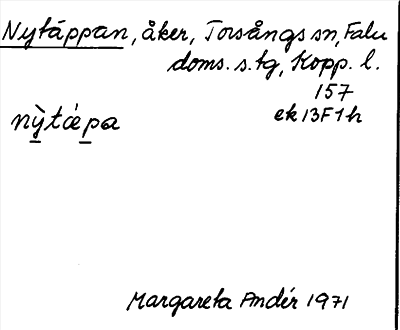 Nytäppan, åker, Torsångs sn, Falu
doms. s. tg, Kopp. l.
157
ek 13F1h
nỳtápa
Margareta Andér 1971